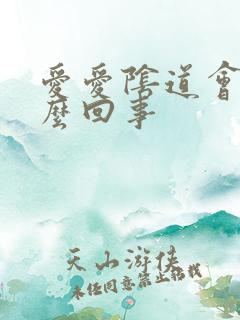 愛愛陰道會
麼回事
天山游俠
未经同意禁止转载